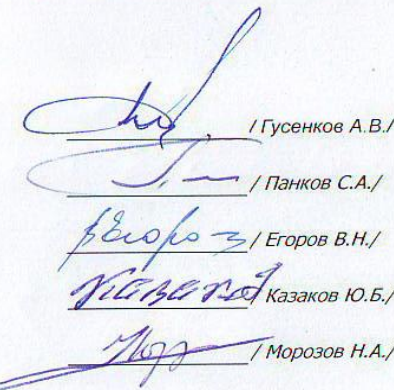 / Гусенков А.В./
/ Панков С.А./
/ Егоров В.Н./
Казаков / Казаков Ю.Б./
/ Морозов Н.А./